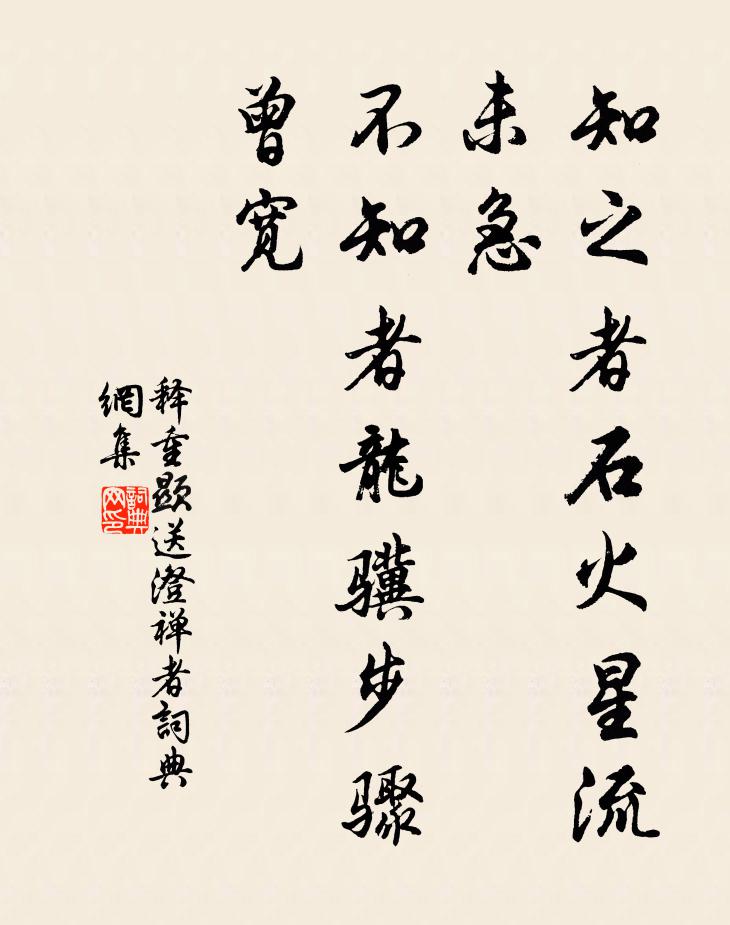 知之者石火星流
未急
不知者龍骥步骤
曾寬
释重顯送澄禅者詞典
網集
詞典
网印